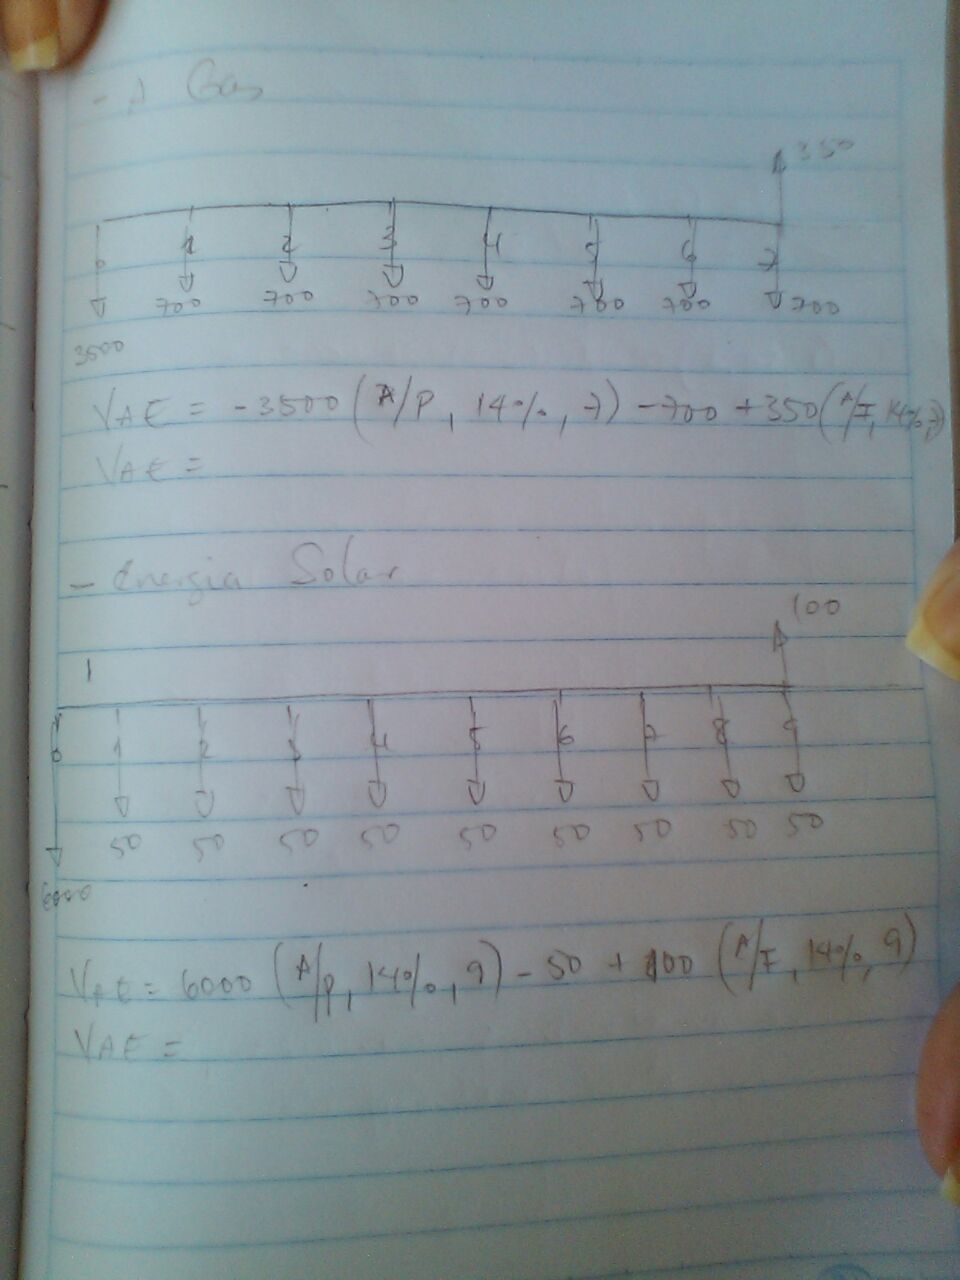 - A Gas
350
0 1 2 3 4 5 6 7
700 700 700 700 700 700 700
3500
VAE = -3500 (A/P, 14%, 7) - 700 + 350 (A/F, 14%, 7)
VAE =
- Energia Solar
100
0 1 2 3 4 5 6 7 8 9
50 50 50 50 50 50 50 50 50
6000
VAE = 6000 (A/P, 14%, 9) - 50 + 100 (A/F, 14%, 9)
VAE =